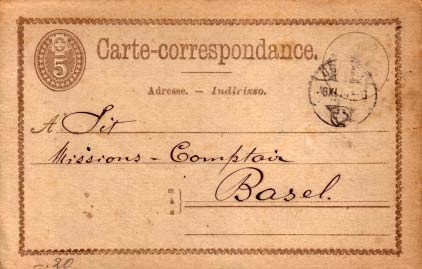 5
Carte-correspondance.
Adresse. — Indirizzo.
A Tit
Missions - Comptair
Basel.
-.20